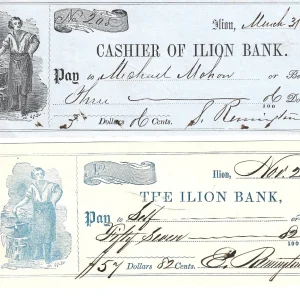 No 205
Ilion, March 31
CASHIER OF ILION BANK.
Pay to Michael Mahon or Be
Three 06/100 Do
3 Dollars 06 Cents. S. Remington
Ilion, Nov. 2
THE ILION BANK,
Pay to Self or
Fifty Seven 82/100
$57 Dollars 82 Cents. E. Remington